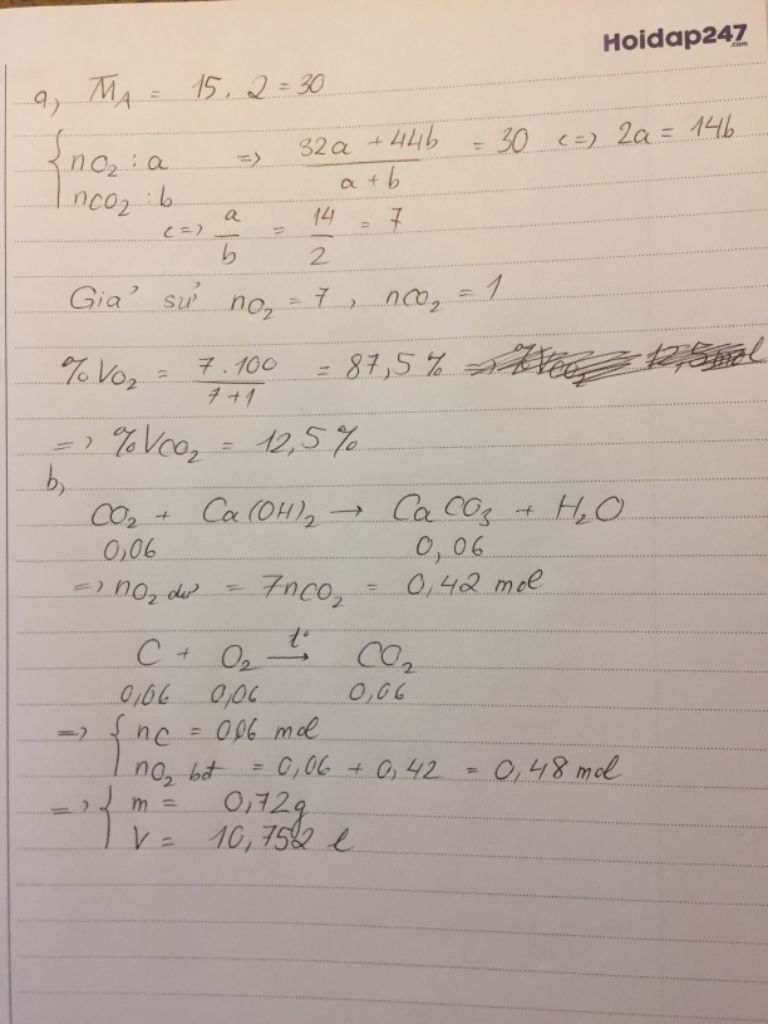 Hoidap247
.com
a, M̅A = 15.2 = 30
{ nO₂ : a => (32a + 44b)/(a + b) = 30 <=> 2a = 14b
nCO₂ : b
<=> a/b = 14/2 = 7
Giả sử nO₂ = 7, nCO₂ = 1
%VO₂ = (7.100)/(7+1) = 87,5%
=> %VCO₂ = 12,5%
b,
CO₂ + Ca(OH)₂ → CaCO₃ + H₂O
0,06 0,06
=> nO₂ dư = 7nCO₂ = 0,42 mol
C + O₂ –t°→ CO₂
0,06 0,06 0,06
=> { nC = 0,06 mol
nO₂ bđ = 0,06 + 0,42 = 0,48 mol
=> { m = 0,72g
V = 10,752 l